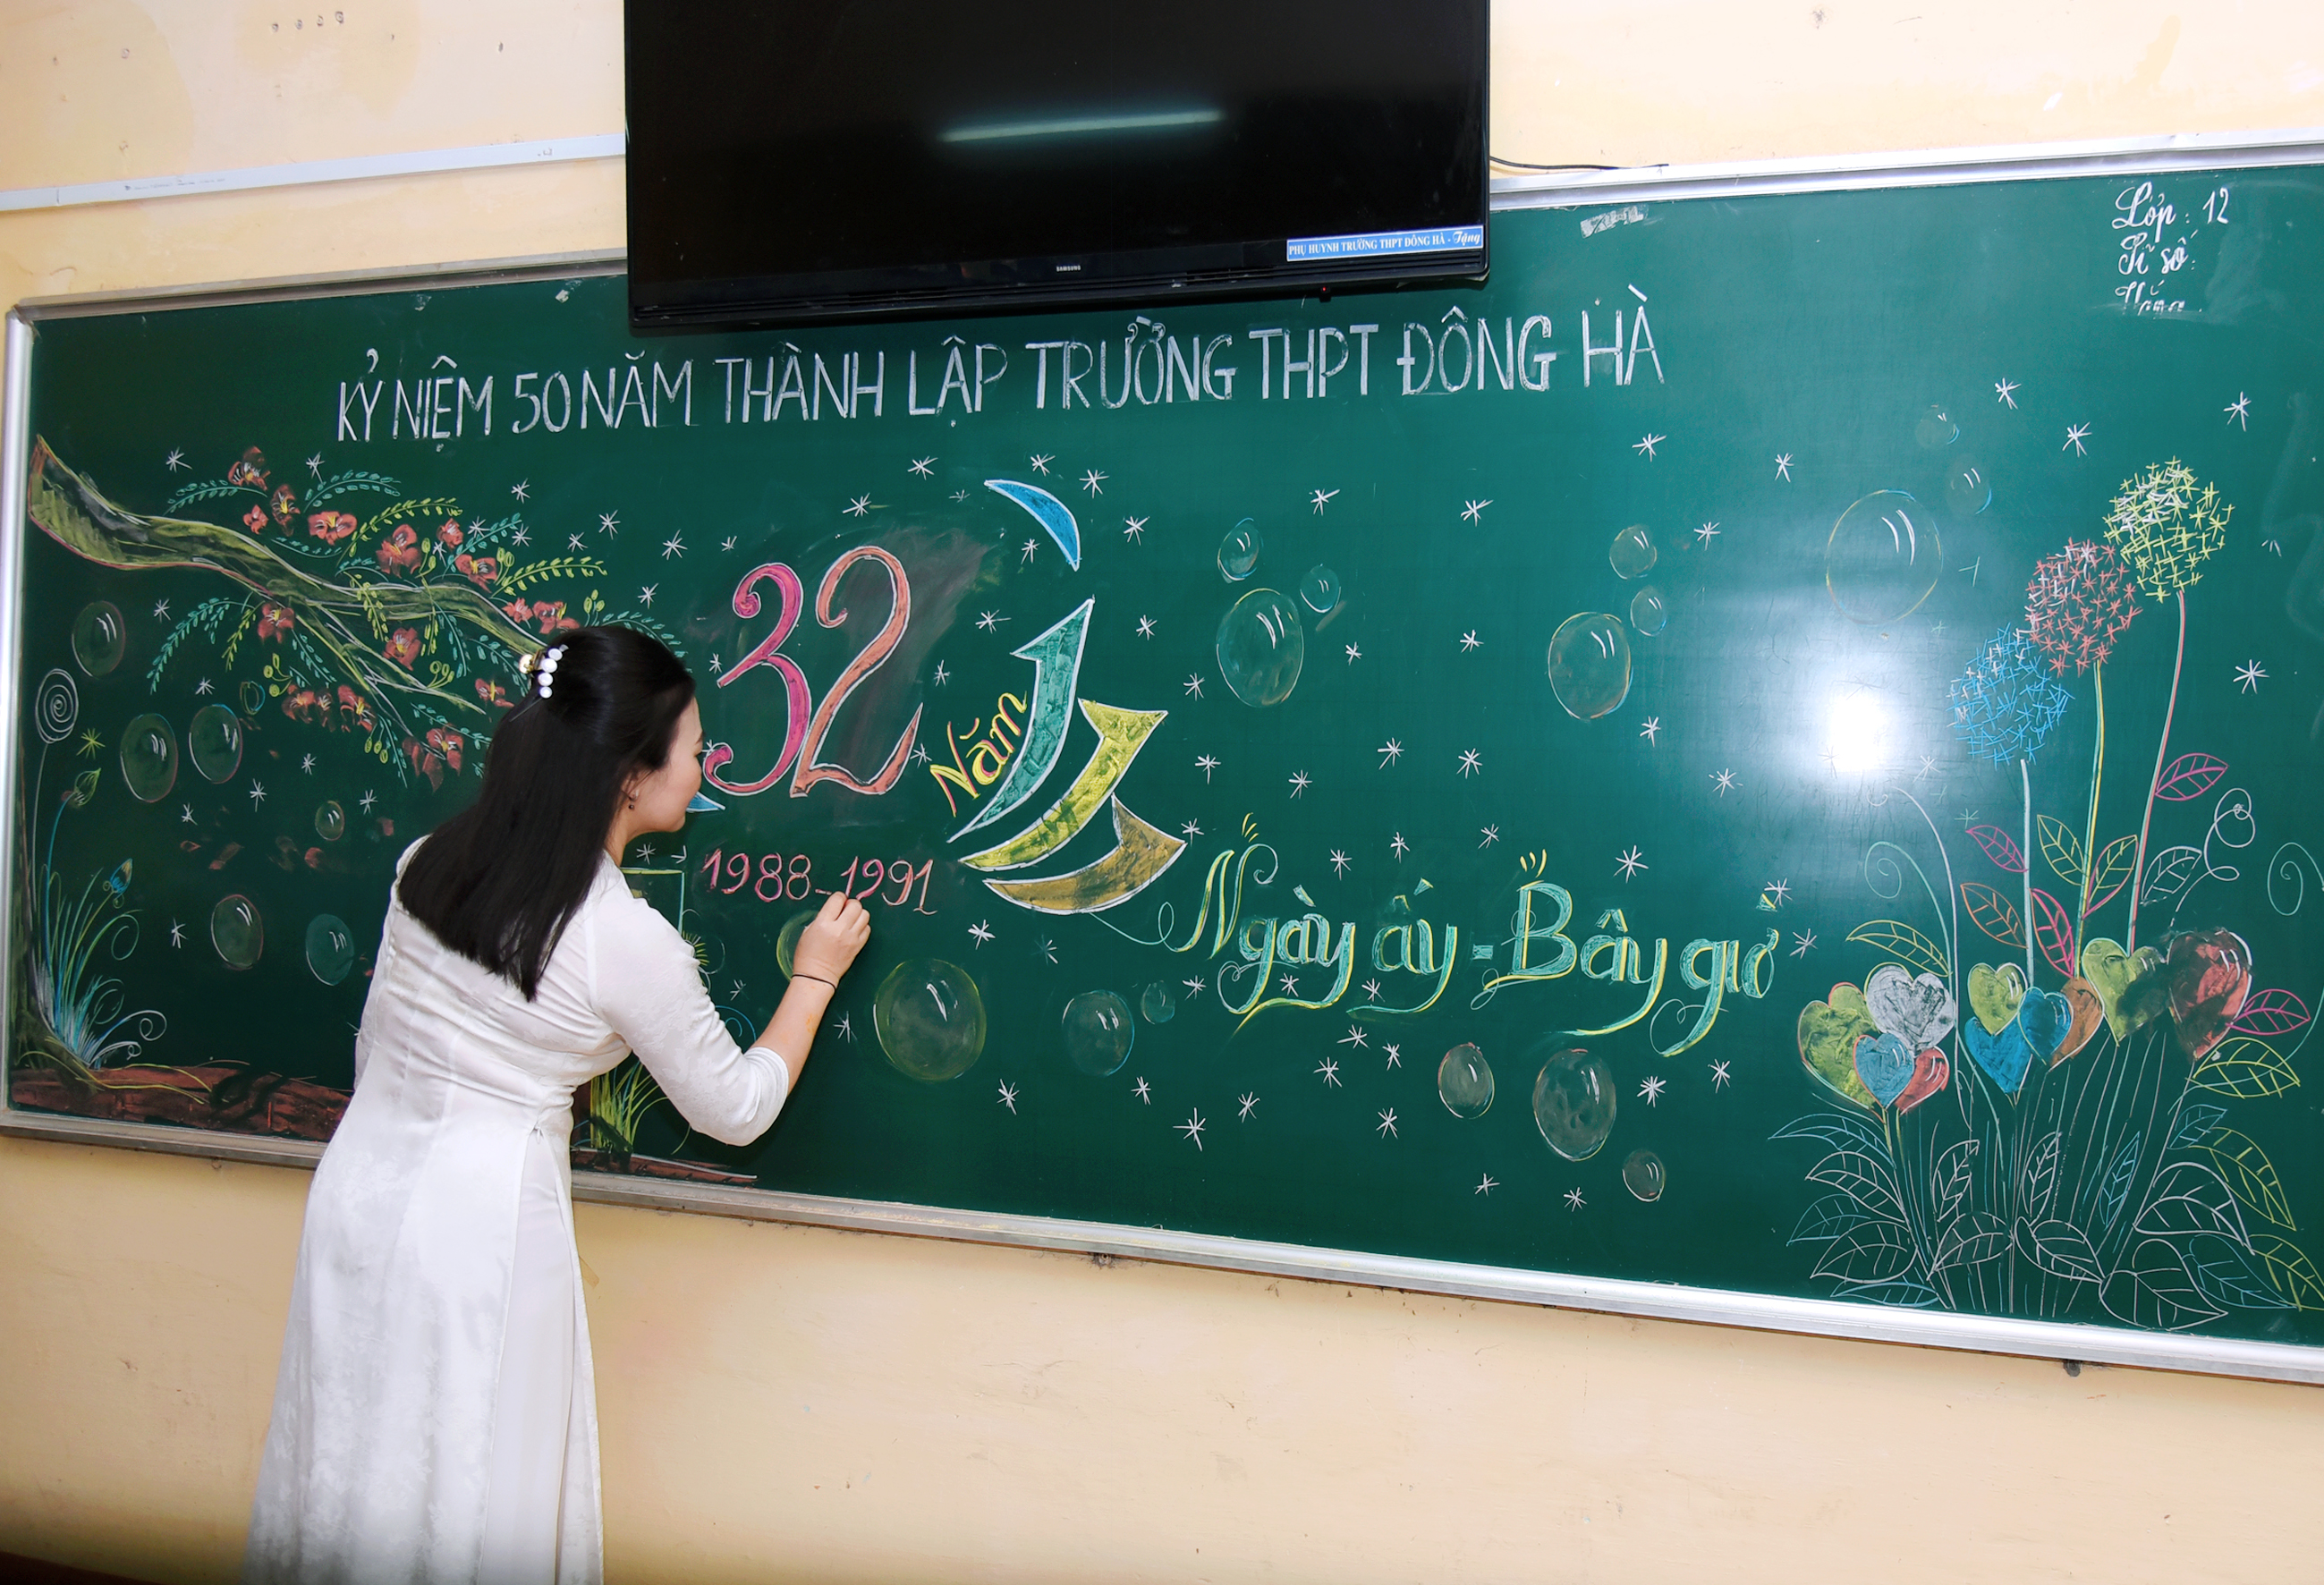 SAMSUNG
PHỤ HUYNH TRƯỜNG THPT ĐÔNG HÀ - Tặng
Lớp: 12
Sĩ số:
Vắng
KỶ NIỆM 50 NĂM THÀNH LẬP TRƯỜNG THPT ĐÔNG HÀ
32
Năm
1988-1991
Ngày ấy - Bây giờ